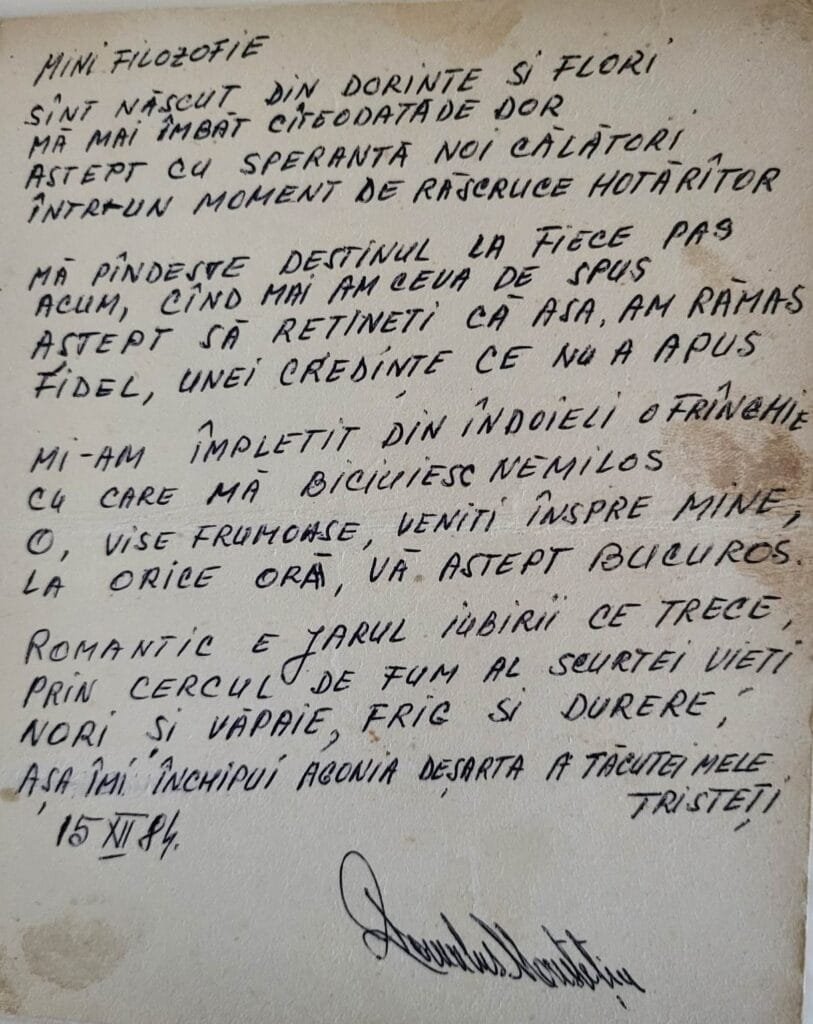 MINI FILOZOFIE
SÎNT NĂSCUT DIN DORINTE SI FLORI
MĂ MAI ÎMBĂT CÎTEODATĂ DE DOR
ASTEPT CU SPERANTĂ NOI CĂLĂTORI
ÎNTR-UN MOMENT DE RĂSCRUCE HOTĂRÎTOR
MĂ PÎNDESTE DESTINUL LA FIECE PAS
ACUM, CÎND MAI AM CEVA DE SPUS
AȘTEPT SĂ RETINETI CĂ ASA, AM RĂMAS
FIDEL, UNEI CREDINTE CE NU A APUS
MI-AM ÎMPLETIT DIN ÎNDOIELI O FRÎNGHIE
CU CARE MĂ BICIUIESC NEMILOS
O, VISE FRUMOASE, VENITI ÎNSPRE MINE,
LA ORICE ORĂ, VĂ ASTEPT BUCUROS.
ROMANTIC E JARUL IUBIRII CE TRECE,
PRIN CERCUL DE FUM AL SCURTEI VIETI
NORI ȘI VĂPAIE, FRIG SI DURERE,
AȘA ÎMI ÎNCHIPUI AGONIA DEȘARTA A TĂCUTEI MELE
TRISTEȚI
15 XII 84.